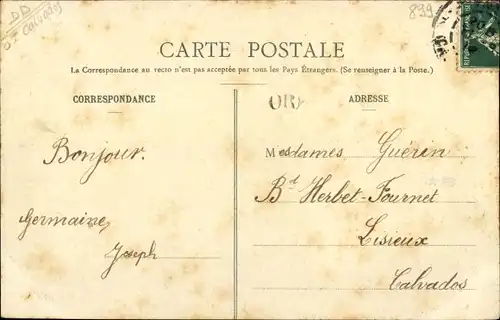 DD
Calvados
839
CARTE POSTALE
La Correspondance au recto n'est pas acceptée par tous les Pays Étrangers. (Se renseigner à la Poste.)
CORRESPONDANCE
OR
ADRESSE
Bonjour.
Germaine,
Joseph
Mesdames Guérin
Bd Herbet-Fournet
Lisieux
Calvados